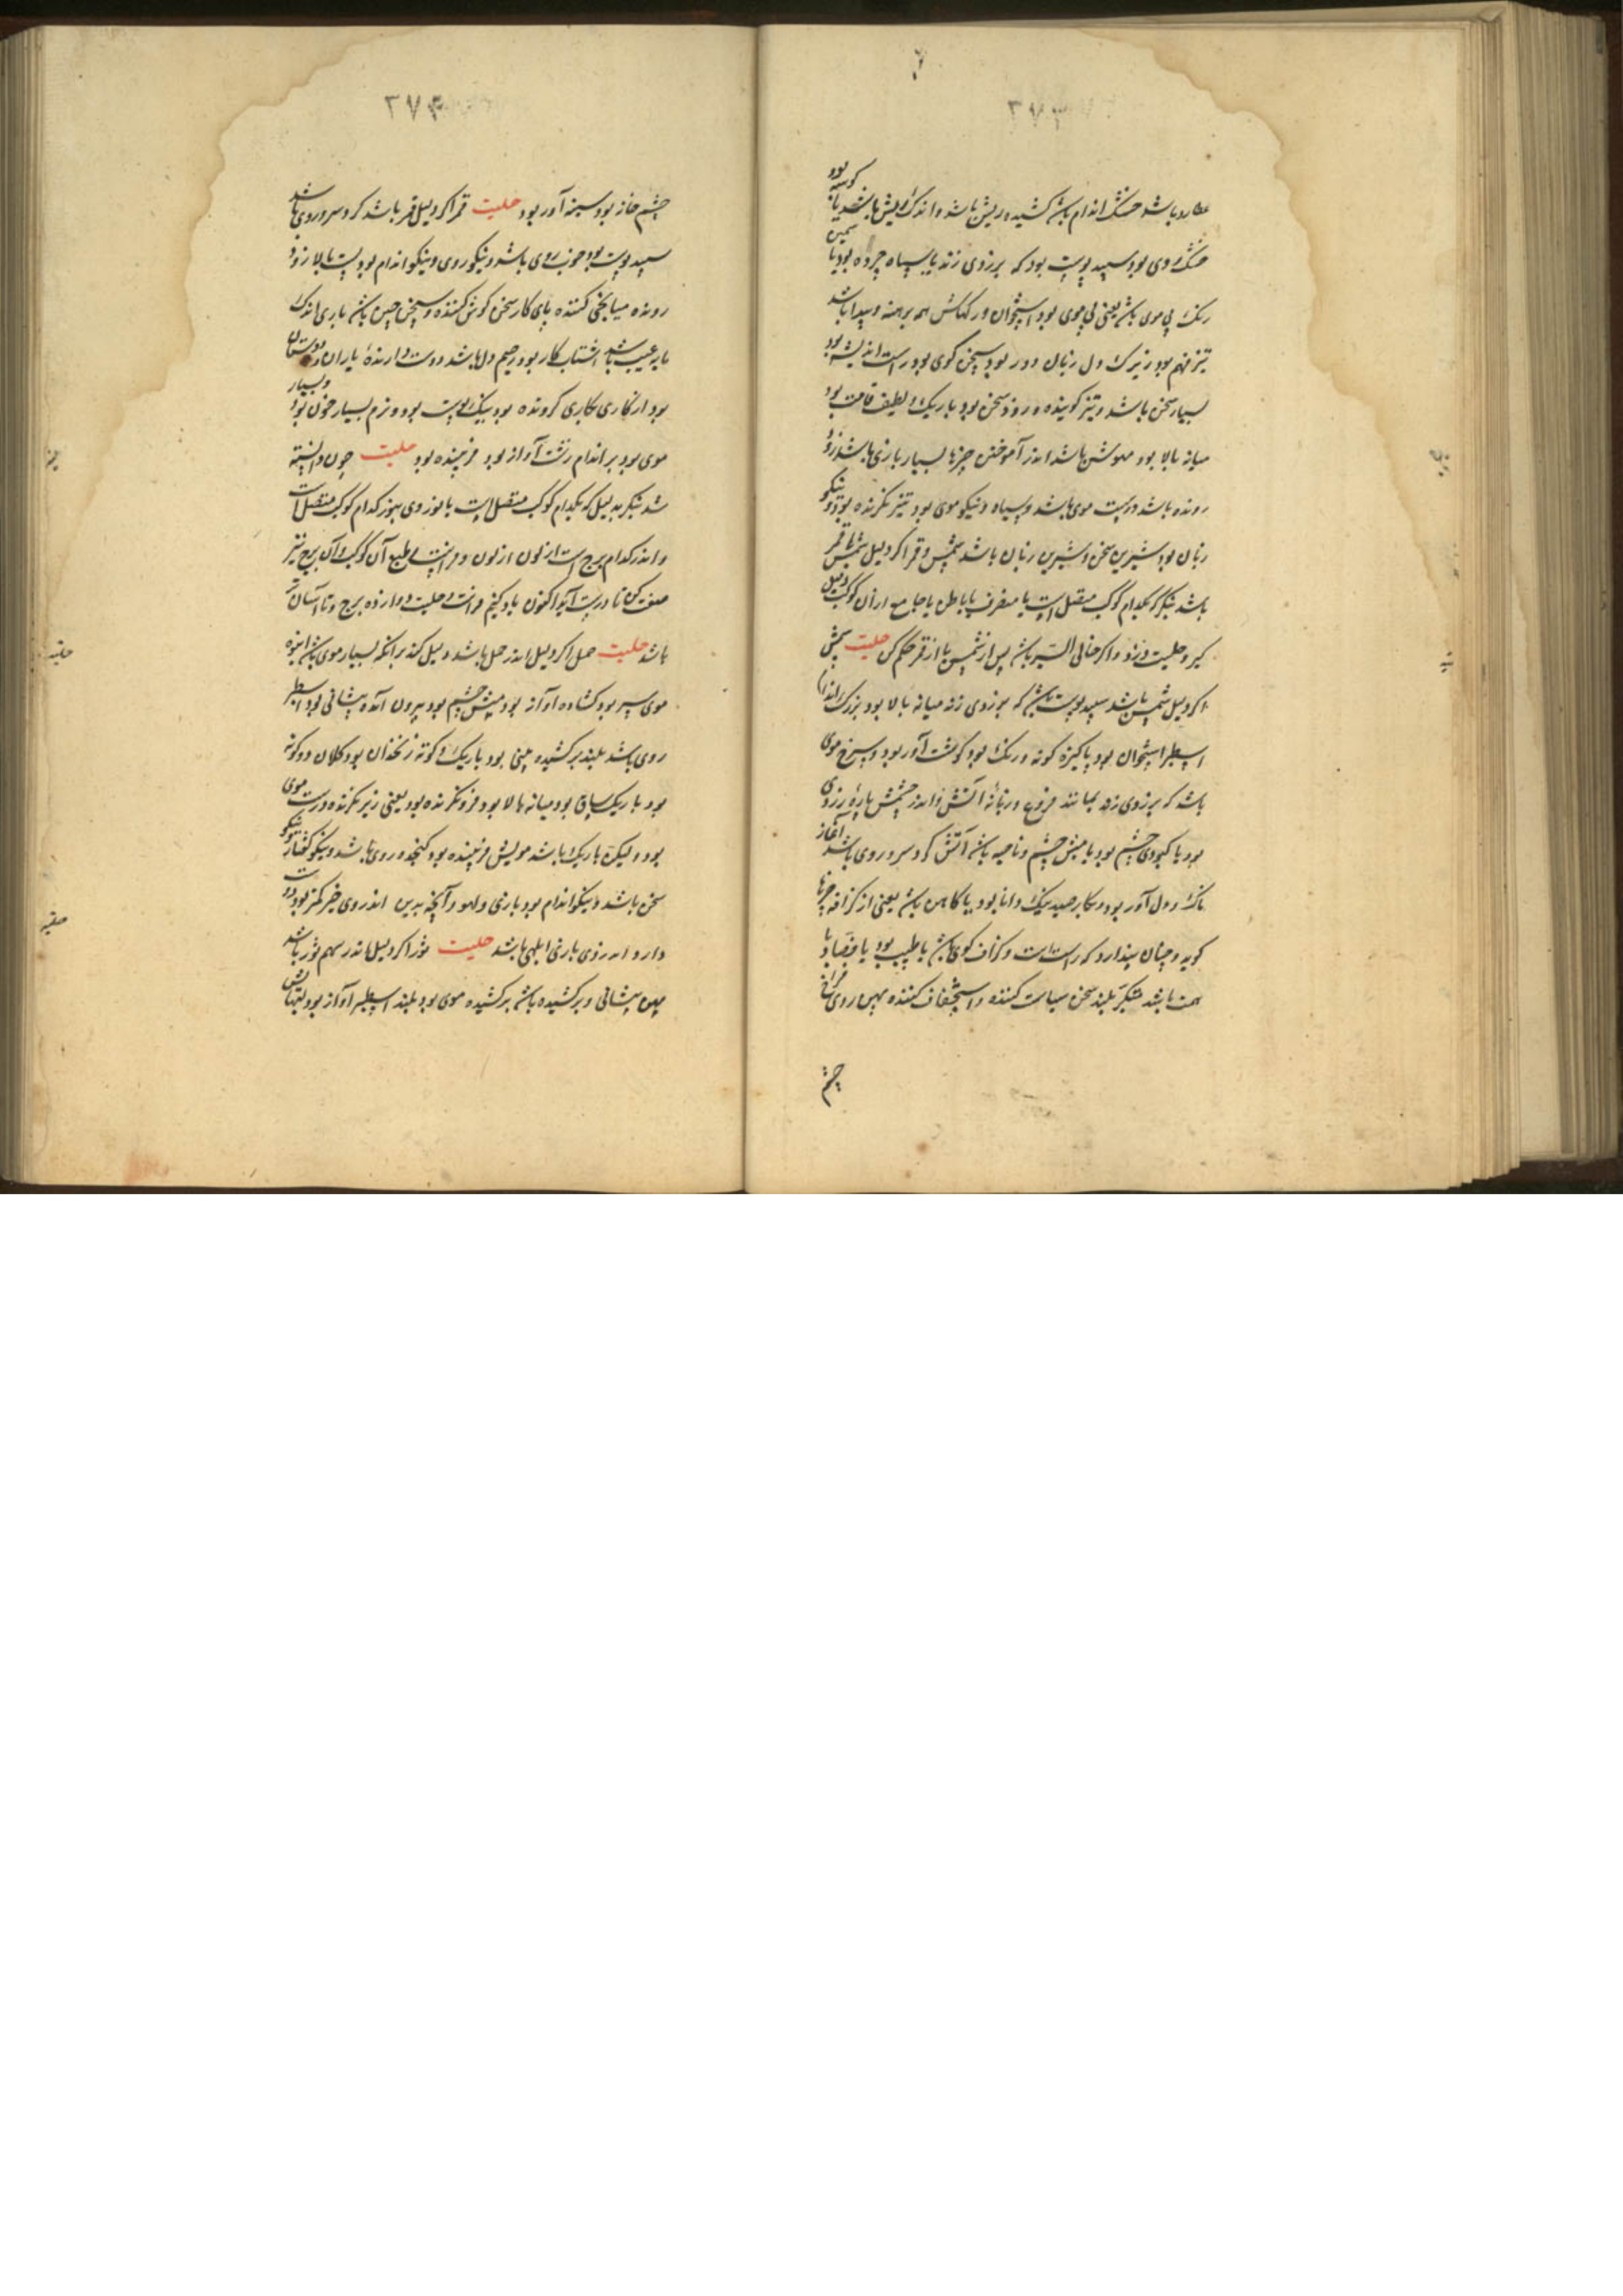 ۳۷۳
عطارد باشد خشک اندام باشد کشیده ریش باشد و اندک ریش باشد یا کوسه بود
خشک روی بود سپید پوست بود که بزردی زند یا سیاه چرده بود یا
رنک بی موی باشد یعنی بی موی بود استخوان و رکهاش همه برهنه و پیدا باشد
تیز فهم بود زیرک دل زبان بود سخن کوی بود راست اندیشه بود
بسیار سخن باشد و تیز کوینده و زود سخن بود باریک و لطیف قامت بود
میانه بالا بود باشد اندر آموختن چیزها بسیار بازی باشد زود
رونده باشد درست موی باشد و سیاه و نیکو موی بود تیز نکرنده بود و نیکو
زبان بود شیرین سخن و شیرین زبان باشد شمس و قمر اکر دلیل شمس یا قمر
باشد بنکر که بکدام کوکب متصل است یا منصرف یا باطن یا جامع از آن کوکب دلیل
کیر و حلیت و زو و اکر خالی السیر باشد پس از شمس یا از قمر حکم کن حلیت شمس
اکر دلیل شمس باشد سپید پوست باشد که بزردی زند میانه بالا بود بزرک اندام
اسطبر استخوان بود پاکیزه کونه و رنک بود کوشت آور بود و سرخ موی
باشد که بزردی زند بمانند فروغ و زبانه آتش و اندر چشمش پاره زردی
بود یا کبودی چشم بود یا میش چشم و ناصیه باشد آتش کرد سر و روی باشد آغاز
ناک و دل آور بود و بکار صید نیک دانا بود یا کاهن باشد یعنی از کزافه چیزها
کوید و چنان پندارد که راست است و کزاف کوی باشد یا طبیب بود یا قصاد یا
همت باشد متکبر بلند سخن سیاست کننده و استخفاف کننده پهن روی فراخ
چشم
۳۷۴
چشم خانه بود سینه آور بود حلیت قمر اکر دلیل قمر باشد کرد سر و روی باشد
سپید پوست بود خوب روی باشد و نیکو روی و نیکو اندام بود پست بالا زود
رونده میانجی کننده پای کار سخن کوش کننده و سخن چین باشد باری اندک
مایه عیب باشد شتاب کار بود رحیم دل باشد دوست دارنده یاران و دوستان
بود از کاری بکاری کردنده بود نیک پوست بود و نرم بسیار خون بود و بسیار
موی بود بر اندام زشت آواز بود فربینده بود حلیت چون دانسته
شد بنکر بدلیل که بکدام کوکب متصل است یا نور وی بنور کدام کوکب متصل است
و اندر کدام برج است از لون و فراست طبع آن کوکب و آن برج نیز
صفت کن تا درست آید اکنون یاد کنیم فراست و حلیت دوازده برج و تا آسان تر
باشد حلیت حمل اکر دلیل اندر حمل باشد دلیل کند بر آنکه بسیار موی باشد انبوه
موی سر بود کشاده آواز بود میش چشم بود بیرون آمده پیشانی بود اسطبر
روی باشد بلند برکشیده بینی بود باریک و کوته زنخدان بود کلان دو کونه
بود باریک ساق بود میانه بالا بود فرونکرنده بود یعنی زیر نکرنده درست موی
بود و لیکن باریک باشد مویش فربینده بود کنجد روی باشد و نیکو کفتار و نیکو
سخن باشد و نیکو اندام بود بازی و لهو و آنچه بدین اندر وی خیر کمتر بود دوست
دارد اندر وی بازی ابلهی باشد حلیت ثور اکر دلیل اندر سهم ثور باشد
پهن پیشانی و برکشیده باشد برکشیده موی بود بلند اسطبر آواز بود لبهاش